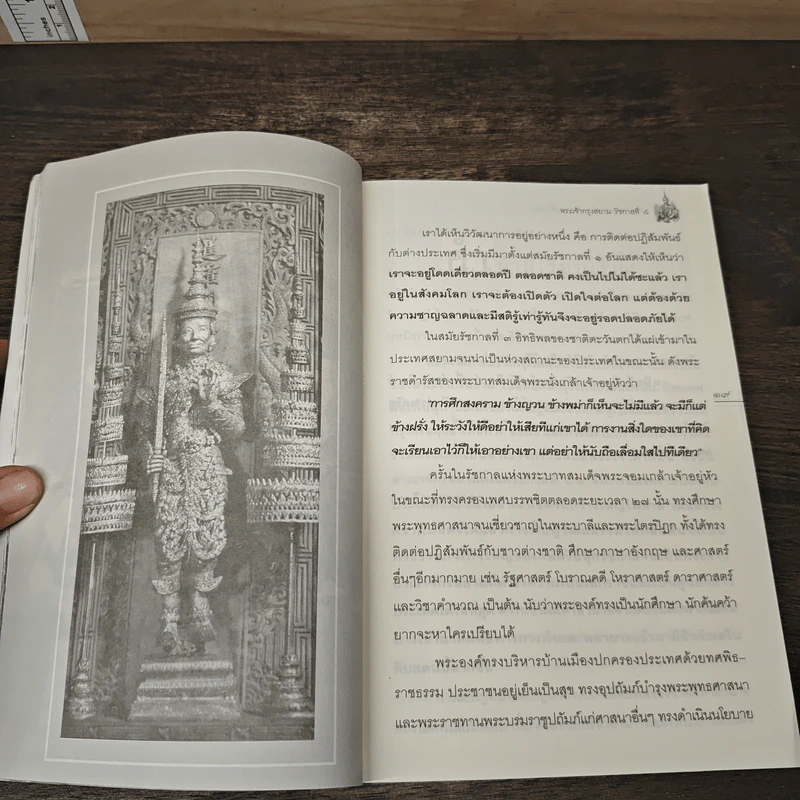 inches
1
2
พระเจ้ากรุงสยาม รัชกาลที่ ๔
เราได้เห็นวิวัฒนาการอยู่อย่างหนึ่ง คือ การติดต่อปฏิสัมพันธ์
กับต่างประเทศ ซึ่งเริ่มมีมาตั้งแต่สมัยรัชกาลที่ ๑ อันแสดงให้เห็นว่า
เราจะอยู่โดดเดี่ยวตลอดปี ตลอดชาติ คงเป็นไปไม่ได้ซะแล้ว เรา
อยู่ในสังคมโลก เราจะต้องเปิดตัว เปิดใจต่อโลก แต่ต้องด้วย
ความชาญฉลาดและมีสติรู้เท่ารู้ทันจึงจะอยู่รอดปลอดภัยได้
ในสมัยรัชกาลที่ ๓ อิทธิพลของชาติตะวันตกได้แผ่เข้ามาใน
ประเทศสยามจนน่าเป็นห่วงสถานะของประเทศในขณะนั้น ดังพระ
ราชดำรัสของพระบาทสมเด็จพระนั่งเกล้าเจ้าอยู่หัวว่า
๑๗
"การศึกสงคราม ข้างญวน ข้างพม่าก็เห็นจะไม่มีแล้ว จะมีก็แต่
ข้างฝรั่ง ให้ระวังให้ดีอย่าให้เสียทีแก่เขาได้ การงานสิ่งใดของเขาที่คิด
จะเรียนเอาไว้ก็ให้เอาอย่างเขา แต่อย่าให้นับถือเลื่อมใสไปทีเดียว"
ครั้นในรัชกาลแห่งพระบาทสมเด็จพระจอมเกล้าเจ้าอยู่หัว
ในขณะที่ทรงครองเพศบรรพชิตตลอดระยะเวลา ๒๗ นั้น ทรงศึกษา
พระพุทธศาสนาจนเชี่ยวชาญในพระบาลีและพระไตรปิฎก ทั้งได้ทรง
ติดต่อปฏิสัมพันธ์กับชาวต่างชาติ ศึกษาภาษาอังกฤษ และศาสตร์
อื่นๆอีกมากมาย เช่น รัฐศาสตร์ โบราณคดี โหราศาสตร์ ดาราศาสตร์
และวิชาคำนวณ เป็นต้น นับว่าพระองค์ทรงเป็นนักศึกษา นักค้นคว้า
ยากจะหาใครเปรียบได้
พระองค์ทรงบริหารบ้านเมืองปกครองประเทศด้วยทศพิธ-
ราชธรรม ประชาชนอยู่เย็นเป็นสุข ทรงอุปถัมภ์บำรุงพระพุทธศาสนา
และพระราชทานพระบรมราชูปถัมภ์แก่ศาสนาอื่นๆ ทรงดำเนินนโยบาย